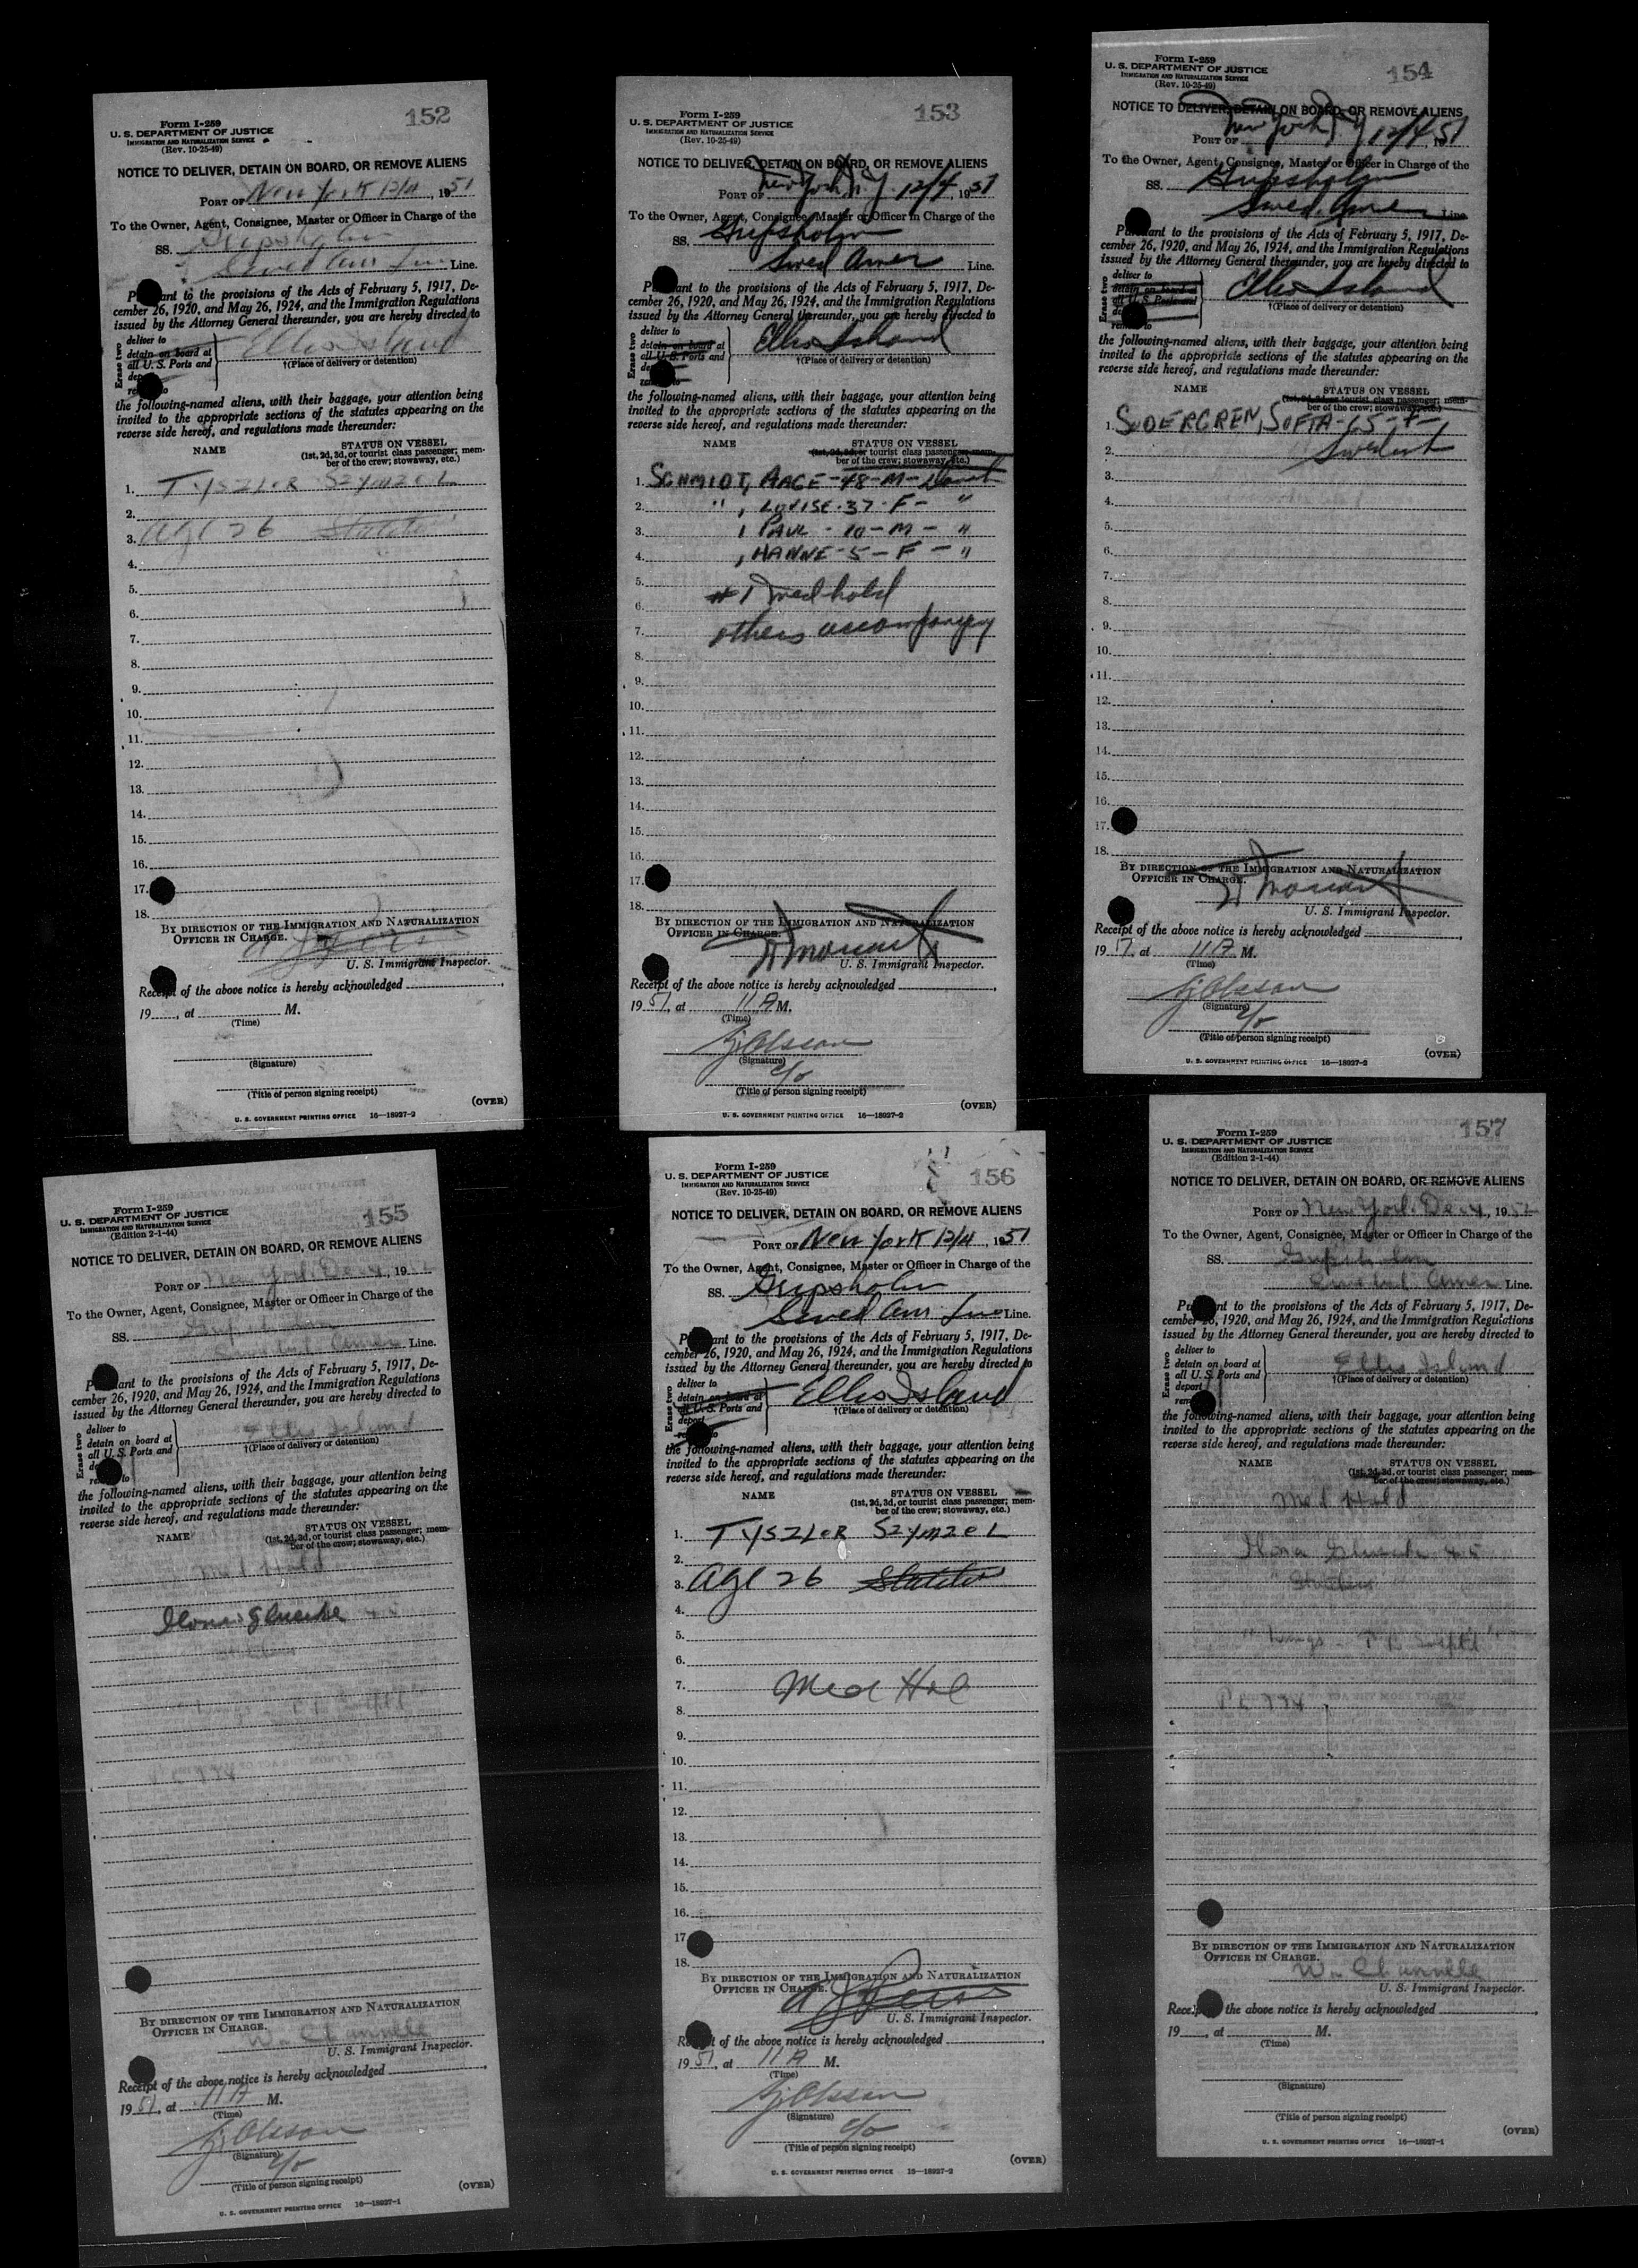 152
Form I-259
U. S. DEPARTMENT OF JUSTICE
IMMIGRATION AND NATURALIZATION SERVICE
(Rev. 10-25-49)
NOTICE TO DELIVER, DETAIN ON BOARD, OR REMOVE ALIENS
PORT OF New York 12/4, 1951
To the Owner, Agent, Consignee, Master or Officer in Charge of the
SS. Gripsholm
Swed Am Line Line.
Pursuant to the provisions of the Acts of February 5, 1917, De-
cember 26, 1920, and May 26, 1924, and the Immigration Regulations
issued by the Attorney General thereunder, you are hereby directed to
Erase two
deliver to
detain on board at
all U. S. Ports and
Ellis Island
†(Place of delivery or detention)
the following-named aliens, with their baggage, your attention being
invited to the appropriate sections of the statutes appearing on the
reverse side hereof, and regulations made thereunder:
NAME STATUS ON VESSEL
(1st, 2d, 3d, or tourist class passenger; mem-
ber of the crew; stowaway, etc.)
1. TYSZLER SZYMZEL
2.
3. Age 26
4.
5.
6.
7.
8.
9.
10.
11.
12.
13.
14.
15.
16.
17.
18.
BY DIRECTION OF THE IMMIGRATION AND NATURALIZATION
OFFICER IN CHARGE.
U. S. Immigrant Inspector.
Receipt of the above notice is hereby acknowledged
19, at M.
(Time)
(Signature)
(Title of person signing receipt)
(OVER)
U. S. GOVERNMENT PRINTING OFFICE 16—18927-2
153
Form I-259
U. S. DEPARTMENT OF JUSTICE
IMMIGRATION AND NATURALIZATION SERVICE
(Rev. 10-25-49)
NOTICE TO DELIVER, DETAIN ON BOARD, OR REMOVE ALIENS
PORT OF New York, N.Y. 12/4, 1951
To the Owner, Agent, Consignee, Master or Officer in Charge of the
SS. Gripsholm
Swed Amer Line.
Pursuant to the provisions of the Acts of February 5, 1917, De-
cember 26, 1920, and May 26, 1924, and the Immigration Regulations
issued by the Attorney General thereunder, you are hereby directed to
Erase two
deliver to
detain on board at
all U. S. Ports and
Ellis Island
†(Place of delivery or detention)
the following-named aliens, with their baggage, your attention being
invited to the appropriate sections of the statutes appearing on the
reverse side hereof, and regulations made thereunder:
NAME STATUS ON VESSEL
(1st, 2d, 3d, or tourist class passenger; mem-
ber of the crew; stowaway, etc.)
1. SCHMIDT, AAGE - 48 - M - Danish
2. " , LOUISE - 37 - F - "
3. , PAUL - 10 - M - "
4. , HANNE - 5 - F - "
5.
6. #1 med hold
7. others accompanying
8.
9.
10.
11.
12.
13.
14.
15.
16.
17.
18.
BY DIRECTION OF THE IMMIGRATION AND NATURALIZATION
OFFICER IN CHARGE.
U. S. Immigrant Inspector.
Receipt of the above notice is hereby acknowledged
1951, at 11 A M.
(Time)
Olsson
(Signature)
c/o
(Title of person signing receipt)
(OVER)
U. S. GOVERNMENT PRINTING OFFICE 16—18927-2
154
Form I-259
U. S. DEPARTMENT OF JUSTICE
IMMIGRATION AND NATURALIZATION SERVICE
(Rev. 10-25-49)
NOTICE TO DELIVER, DETAIN ON BOARD, OR REMOVE ALIENS
PORT OF New York, N.Y. 12/4, 1951
To the Owner, Agent, Consignee, Master or Officer in Charge of the
SS. Gripsholm
Swed. Amer Line.
Pursuant to the provisions of the Acts of February 5, 1917, De-
cember 26, 1920, and May 26, 1924, and the Immigration Regulations
issued by the Attorney General thereunder, you are hereby directed to
Erase two
deliver to
detain on board at
all U. S. Ports and
Ellis Island
†(Place of delivery or detention)
the following-named aliens, with their baggage, your attention being
invited to the appropriate sections of the statutes appearing on the
reverse side hereof, and regulations made thereunder:
NAME STATUS ON VESSEL
(1st, 2d, 3d, or tourist class passenger; mem-
ber of the crew; stowaway, etc.)
1. SODERGREN, SOFIA - 65 - F -
2. Swedish
3.
4.
5.
6.
7.
8.
9.
10.
11.
12.
13.
14.
15.
16.
17.
18.
BY DIRECTION OF THE IMMIGRATION AND NATURALIZATION
OFFICER IN CHARGE.
U. S. Immigrant Inspector.
Receipt of the above notice is hereby acknowledged
1951, at 11 A. M.
(Time)
Olsson
(Signature)
c/o
(Title of person signing receipt)
(OVER)
U. S. GOVERNMENT PRINTING OFFICE 16—18927-2
155
Form I-259
U. S. DEPARTMENT OF JUSTICE
IMMIGRATION AND NATURALIZATION SERVICE
(Edition 2-1-44)
NOTICE TO DELIVER, DETAIN ON BOARD, OR REMOVE ALIENS
PORT OF New York, Dec 4, 19
To the Owner, Agent, Consignee, Master or Officer in Charge of the
SS. Gripsholm
Swedish Amer Line.
Pursuant to the provisions of the Acts of February 5, 1917, De-
cember 26, 1920, and May 26, 1924, and the Immigration Regulations
issued by the Attorney General thereunder, you are hereby directed to
Erase two
deliver to
detain on board at
all U. S. Ports and
Ellis Island
†(Place of delivery or detention)
the following-named aliens, with their baggage, your attention being
invited to the appropriate sections of the statutes appearing on the
reverse side hereof, and regulations made thereunder:
NAME STATUS ON VESSEL
(1st, 2d, 3d, or tourist class passenger; mem-
ber of the crew; stowaway, etc.)
Med Hold
Ilona 45
BY DIRECTION OF THE IMMIGRATION AND NATURALIZATION
OFFICER IN CHARGE.
U. S. Immigrant Inspector.
Receipt of the above notice is hereby acknowledged
1951, at 11 A M.
(Time)
Olsson
(Signature)
c/o
(Title of person signing receipt)
(OVER)
U. S. GOVERNMENT PRINTING OFFICE 16—18927-1
156
Form I-259
U. S. DEPARTMENT OF JUSTICE
IMMIGRATION AND NATURALIZATION SERVICE
(Rev. 10-25-49)
NOTICE TO DELIVER, DETAIN ON BOARD, OR REMOVE ALIENS
PORT OF New York 12/4, 1951
To the Owner, Agent, Consignee, Master or Officer in Charge of the
SS. Gripsholm
Swed Am Line Line.
Pursuant to the provisions of the Acts of February 5, 1917, De-
cember 26, 1920, and May 26, 1924, and the Immigration Regulations
issued by the Attorney General thereunder, you are hereby directed to
Erase two
deliver to
detain on board at
all U. S. Ports and
depart
Ellis Island
†(Place of delivery or detention)
the following-named aliens, with their baggage, your attention being
invited to the appropriate sections of the statutes appearing on the
reverse side hereof, and regulations made thereunder:
NAME STATUS ON VESSEL
(1st, 2d, 3d, or tourist class passenger; mem-
ber of the crew; stowaway, etc.)
1. TYSZLER SZYMZEL
2.
3. Age 26
4.
5.
6.
7. Med Hol
8.
9.
10.
11.
12.
13.
14.
15.
16.
17
18.
BY DIRECTION OF THE IMMIGRATION AND NATURALIZATION
OFFICER IN CHARGE.
U. S. Immigrant Inspector.
Receipt of the above notice is hereby acknowledged
1951, at 11 A M.
(Time)
Olsson
(Signature)
c/o
(Title of person signing receipt)
(OVER)
U. S. GOVERNMENT PRINTING OFFICE 16—18927-2
157
Form I-259
U. S. DEPARTMENT OF JUSTICE
IMMIGRATION AND NATURALIZATION SERVICE
(Edition 2-1-44)
NOTICE TO DELIVER, DETAIN ON BOARD, OR REMOVE ALIENS
PORT OF New York, Dec 4, 195
To the Owner, Agent, Consignee, Master or Officer in Charge of the
SS. Gripsholm
Swedish Amer Line.
Pursuant to the provisions of the Acts of February 5, 1917, De-
cember 26, 1920, and May 26, 1924, and the Immigration Regulations
issued by the Attorney General thereunder, you are hereby directed to
Erase two
deliver to
detain on board at
all U. S. Ports and
deport
Ellis Island
†(Place of delivery or detention)
the following-named aliens, with their baggage, your attention being
invited to the appropriate sections of the statutes appearing on the
reverse side hereof, and regulations made thereunder:
NAME STATUS ON VESSEL
(1st, 2d, 3d, or tourist class passenger; mem-
ber of the crew; stowaway, etc.)
Med Hold
Ilona 45
BY DIRECTION OF THE IMMIGRATION AND NATURALIZATION
OFFICER IN CHARGE.
U. S. Immigrant Inspector.
Receipt of the above notice is hereby acknowledged
19, at M.
(Time)
(Signature)
(Title of person signing receipt)
(OVER)
U. S. GOVERNMENT PRINTING OFFICE 16—18927-1